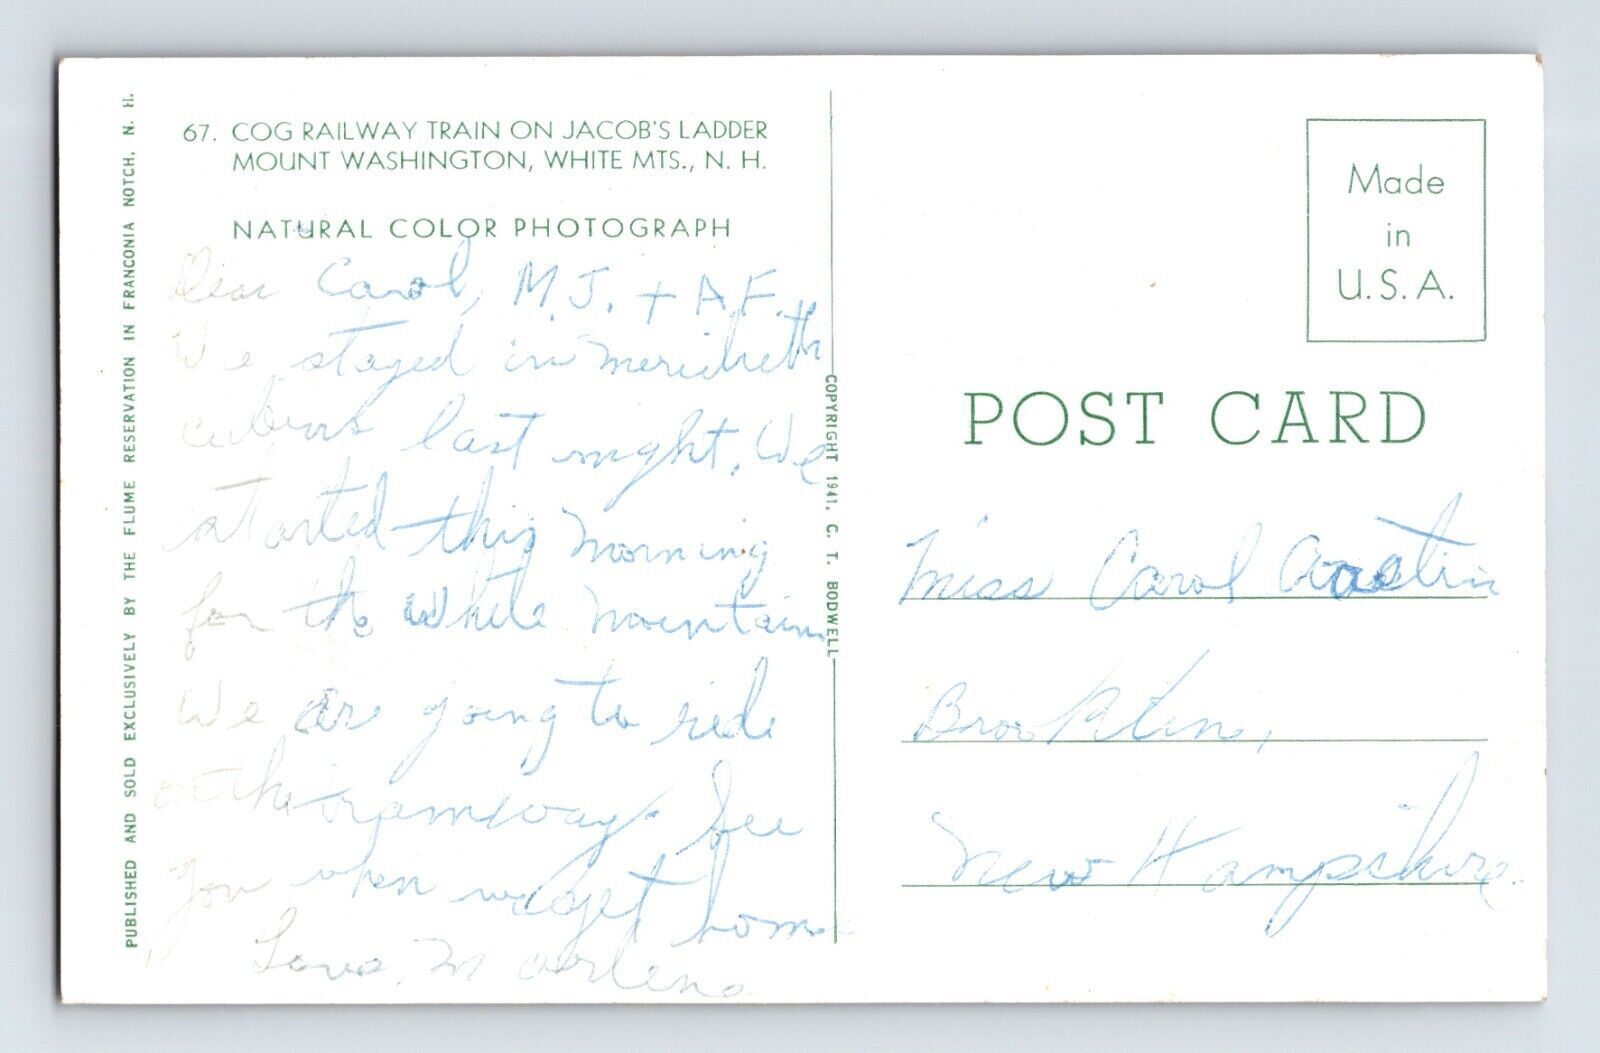 67. COG RAILWAY TRAIN ON JACOB'S LADDER
MOUNT WASHINGTON, WHITE MTS., N. H.
NATURAL COLOR PHOTOGRAPH
Dear Carol, M.J. + A.F.
We stayed in
cabins last night. We
started this morning
for the White Mountains
We are going to ride
on the tramway. See
you when we get home
Love, Marlene
PUBLISHED AND SOLD EXCLUSIVELY BY THE FLUME RESERVATION IN FRANCONIA NOTCH, N. H.
COPYRIGHT 1941, C. T. BODWELL
Made
in
U.S.A.
POST CARD
Miss Carol
Brooklin,
New Hampshire.